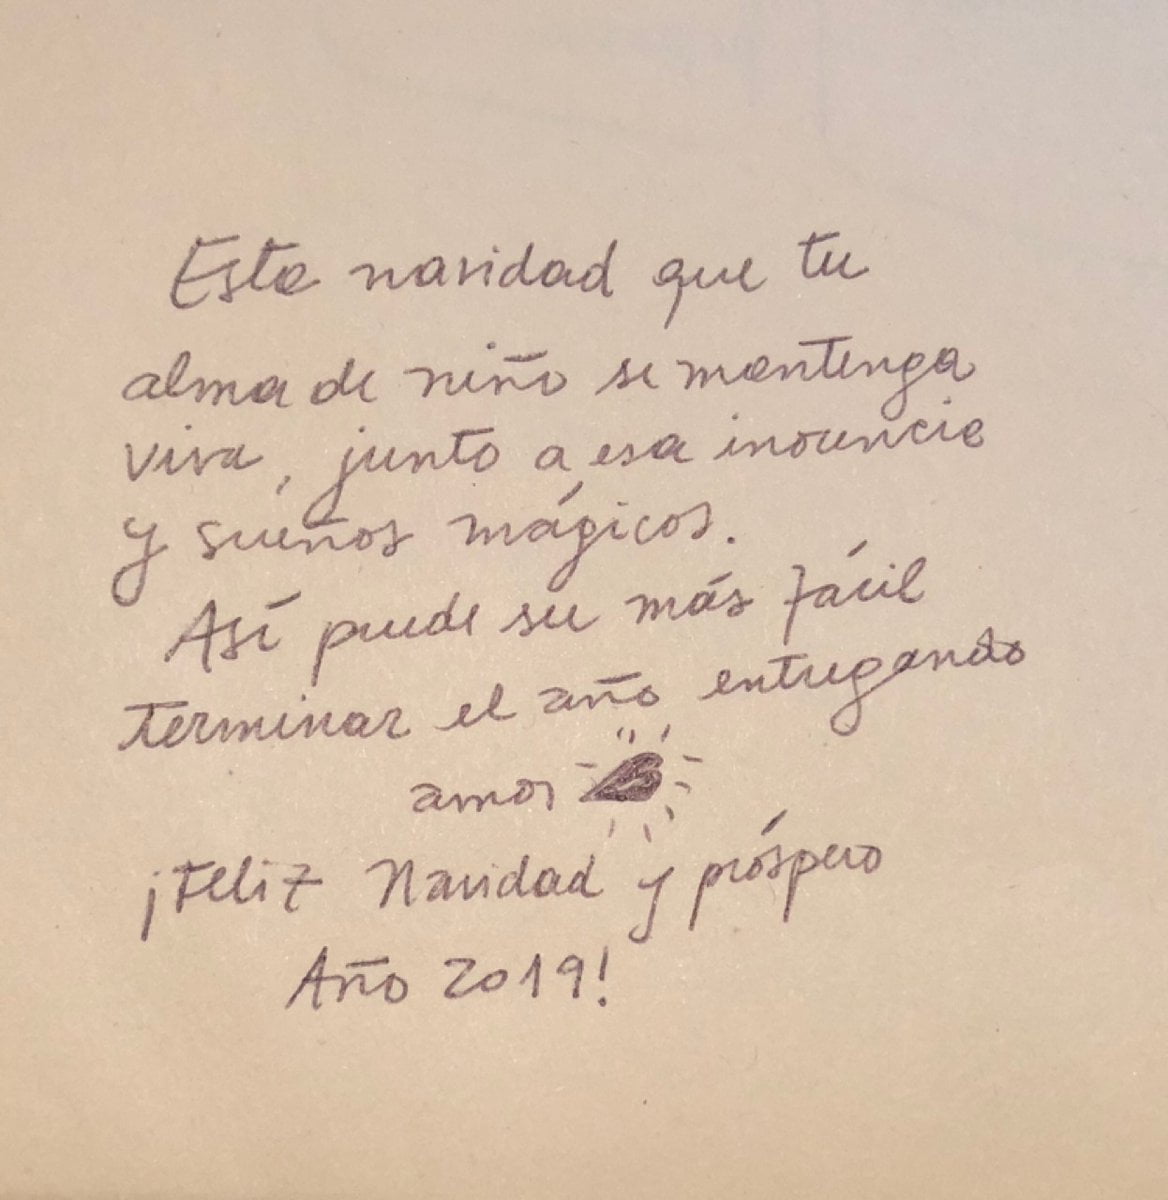 Esta navidad que tu
alma de niño se mantenga
viva, junto a esa inocencia
y sueños mágicos.
Así puede ser más fácil
terminar el año entregando
amor
¡Feliz Navidad y próspero
Año 2019!